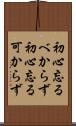 初心忘る
べからず
初心忘る
可からず